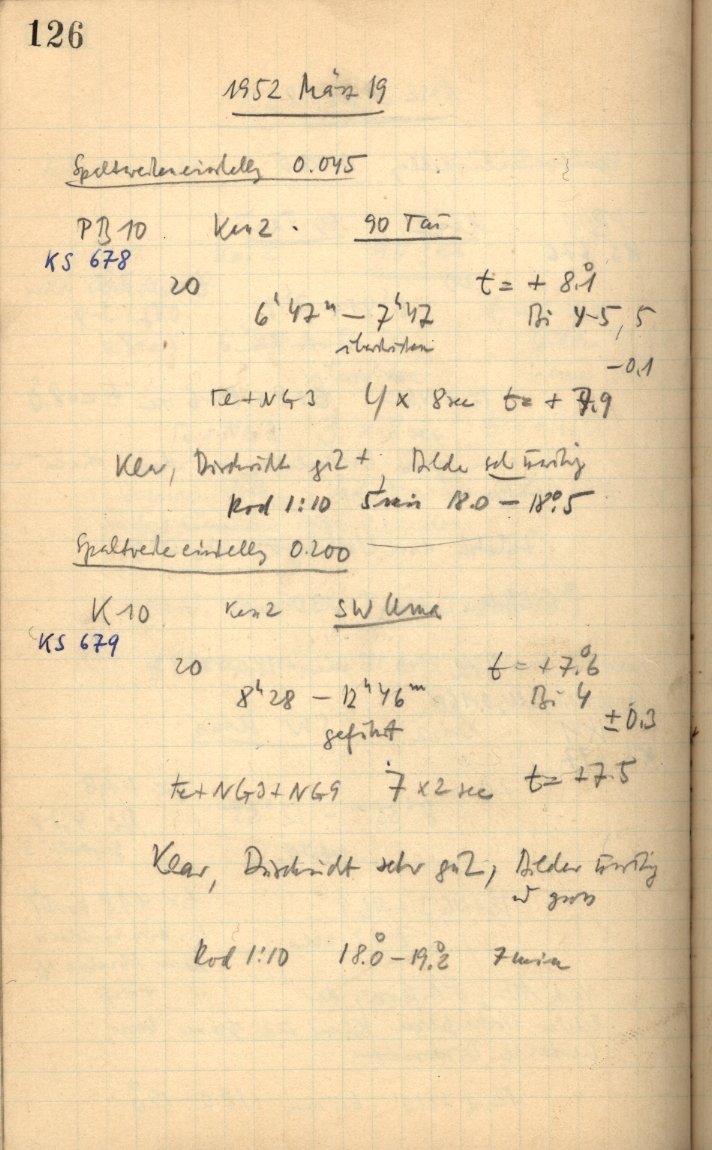 126
1952 März 19
Spaltweiteneinstellg 0.045
PB10 Ken2 . 90 Tau
KS 678
20 t = + 8.°1
6ʰ47ᵐ — 7ʰ47 Bi 4-5, 5
-0.1
Fe+NG3 4 x 8sec t = + 7.9
Klar, Durchsicht gut +, Bilder unruhig
Rod 1:10 5 min 18.0 — 18°.5
Spaltweiteeinstellg 0.200
K10 Ken2 SW Uma
KS 679
20 t = +7.°6
8ʰ28 — 12ʰ46ᵐ Bi 4
±0.3
geführt
Fe+NG3+NG9 7 x 2 sec t = +7.5
Klar, Durchsicht sehr gut, Bilder unruhig
u gross
Rod 1:10 18.°0 — 19.°2 7min